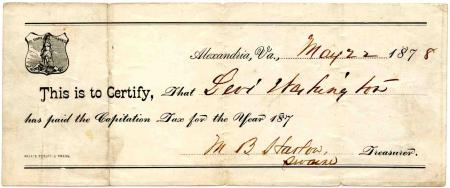 Alexandria, Va., May 22 1878
This is to Certify, That Levi Washington
has paid the Capitation Tax for the Year 187
M B Harlow, Treasurer.